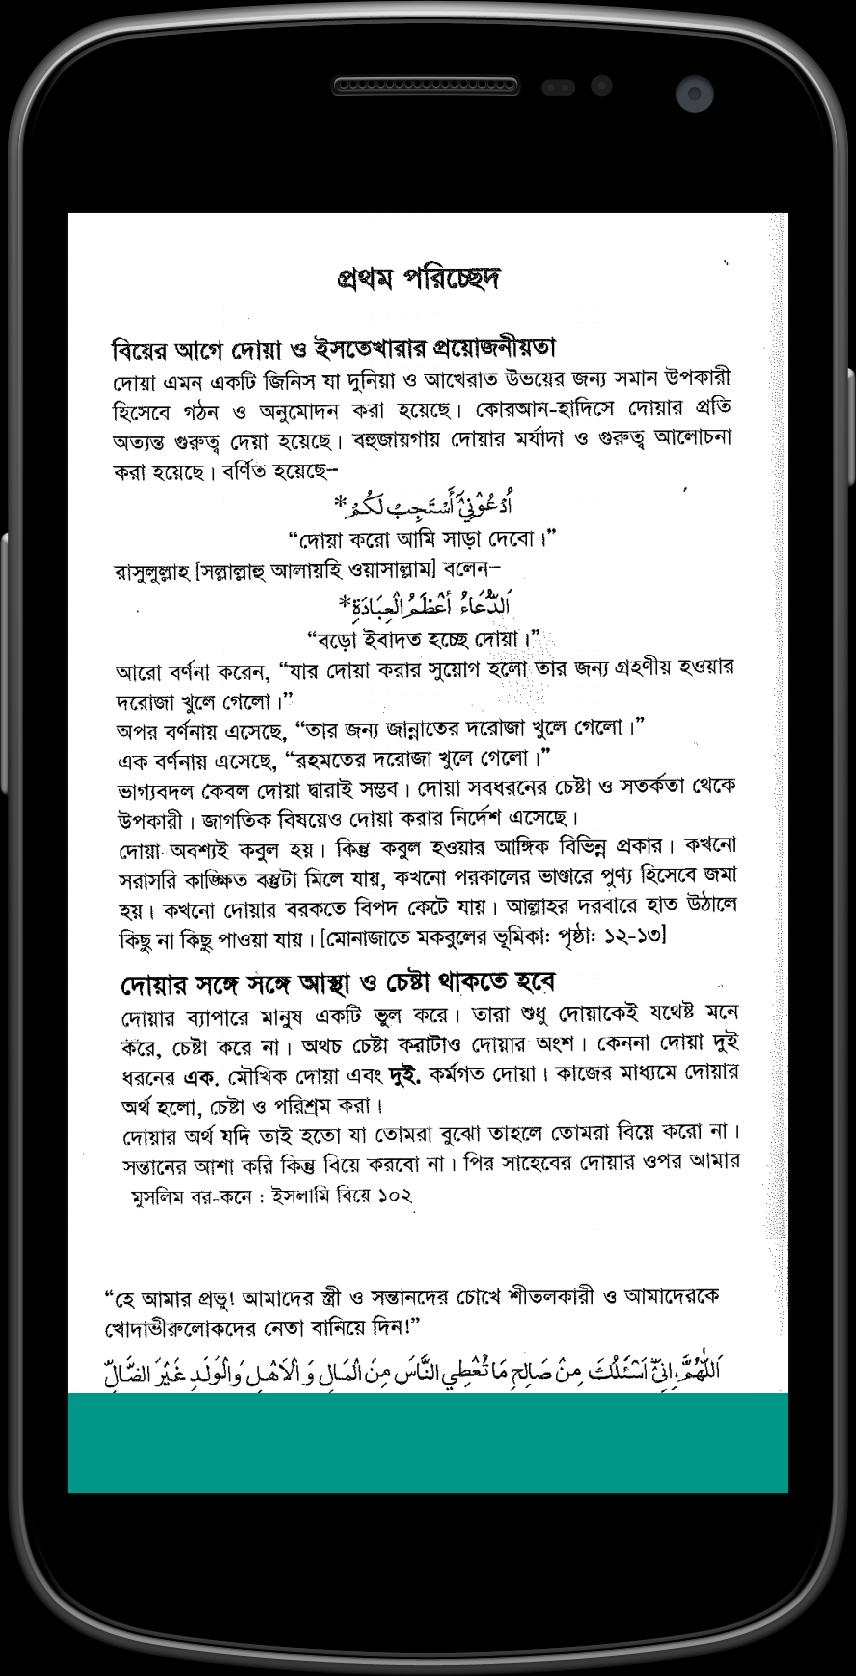 প্রথম পরিচ্ছেদ
বিয়ের আগে দোয়া ও ইসতেখারার প্রয়োজনীয়তা
দোয়া এমন একটি জিনিস যা দুনিয়া ও আখেরাত উভয়ের জন্য সমান উপকারী
হিসেবে গঠন ও অনুমোদন করা হয়েছে। কোরআন-হাদিসে দোয়ার প্রতি
অত্যন্ত গুরুত্ব দেয়া হয়েছে। বহুজায়গায় দোয়ার মর্যাদা ও গুরুত্ব আলোচনা
করা হয়েছে। বর্ণিত হয়েছে–
اُدْعُوْنِيْ أَسْتَجِبْ لَكُمْ*
“দোয়া করো আমি সাড়া দেবো।”
রাসুলুল্লাহ [সল্লাল্লাহু আলায়হি ওয়াসাল্লাম] বলেন–
اَلدُّعَاءُ أَعْظَمُ الْعِبَادَةِ*
“বড়ো ইবাদত হচ্ছে দোয়া।”
আরো বর্ণনা করেন, “যার দোয়া করার সুযোগ হলো তার জন্য গ্রহণীয় হওয়ার
দরোজা খুলে গেলো।”
অপর বর্ণনায় এসেছে, “তার জন্য জান্নাতের দরোজা খুলে গেলো।”
এক বর্ণনায় এসেছে, “রহমতের দরোজা খুলে গেলো।”
ভাগ্যবদল কেবল দোয়া দ্বারাই সম্ভব। দোয়া সবধরনের চেষ্টা ও সতর্কতা থেকে
উপকারী। জাগতিক বিষয়েও দোয়া করার নির্দেশ এসেছে।
দোয়া অবশ্যই কবুল হয়। কিন্তু কবুল হওয়ার আঙ্গিক বিভিন্ন প্রকার। কখনো
সরাসরি কাঙ্ক্ষিত বস্তুটা মিলে যায়, কখনো পরকালের ভাণ্ডারে পুণ্য হিসেবে জমা
হয়। কখনো দোয়ার বরকতে বিপদ কেটে যায়। আল্লাহর দরবারে হাত উঠালে
কিছু না কিছু পাওয়া যায়। [মোনাজাতে মকবুলের ভূমিকাঃ পৃষ্ঠাঃ ১২-১৩]
দোয়ার সঙ্গে সঙ্গে আস্থা ও চেষ্টা থাকতে হবে
দোয়ার ব্যাপারে মানুষ একটি ভুল করে। তারা শুধু দোয়াকেই যথেষ্ট মনে
করে, চেষ্টা করে না। অথচ চেষ্টা করাটাও দোয়ার অংশ। কেননা দোয়া দুই
ধরনের এক. মৌখিক দোয়া এবং দুই. কর্মগত দোয়া। কাজের মাধ্যমে দোয়ার
অর্থ হলো, চেষ্টা ও পরিশ্রম করা।
দোয়ার অর্থ যদি তাই হতো যা তোমরা বুঝো তাহলে তোমরা বিয়ে করো না।
সন্তানের আশা করি কিন্তু বিয়ে করবো না। পির সাহেবের দোয়ার ওপর আমার
মুসলিম বর-কনে : ইসলামি বিয়ে ১০২
“হে আমার প্রভু! আমাদের স্ত্রী ও সন্তানদের চোখে শীতলকারী ও আমাদেরকে
খোদাভীরুলোকদের নেতা বানিয়ে দিন!”
اَللّٰهُمَّ اِنِّيْ اَسْئَلُكَ مِنْ صَالِحِ مَا تُعْطِي النَّاسَ مِنَ الْمَالِ وَ الْاَهْلِ وَالْوَلَدِ غَيْرَ الضَّالِّ